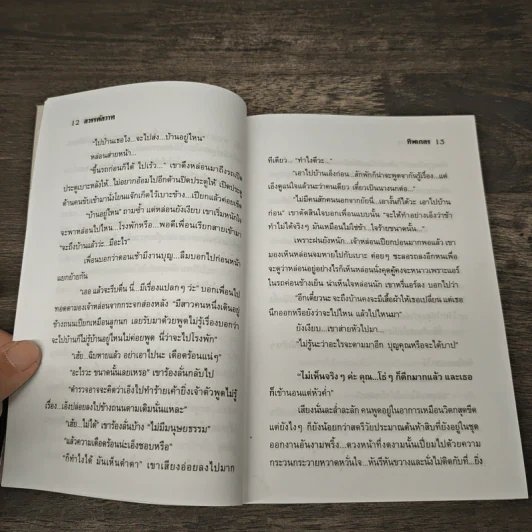 12 สาปรสสวาท
"ไปบ้านเธอไง...จะไปส่ง...บ้านอยู่ไหน"
หล่อนส่ายหน้า...
"ขึ้นรถก่อนก็ได้ ไปเร็ว..." เขาดึงหล่อนมาถึงรถเปิด
ประตูเบาะหลังให้...ไม่อยากอ้อมไปอีกด้านเปิดประตูให้ เปิดประตู
ด้านคนขับเข้ามานั่งโยนแจ๊กเก็ตไว้เบาะข้าง...เปียกแล้วค่อยเช็ด
"บ้านอยู่ไหน" ถามซ้ำ แต่หล่อนยังเงียบ เขาเริ่มหนักใจ
จะพาหล่อนไปไหน...โรงพักหรือ... พอดีเพื่อนเรียกสายเข้ามา
"จะถึงบ้านแล้วว่ะ...มีอะไร"
เพื่อนบอกว่าตอนเช้ามีงานบุญ...ลืมบอกไปก่อนหน้า
แยกย้ายกัน
"เออ แล้วจะรีบตื่น นี่...มีเรื่องแปลกๆ ว่ะ" บอกเพื่อนไป
ทอดตามองเจ้าหล่อนจากกระจกส่องหลัง "มีสาวคนหนึ่งเดินอยู่
ข้างถนนเปียกเหมือนลูกนก เลยรับมาด้วยพูดไม่รู้เรื่องบอกว่า
จะไปบ้านก็ไม่รู้บ้านอยู่ไหนไม่ค่อยพูด นี่ว่าจะไปโรงพัก"
"เฮ้ย...ฉิบหายแล้ว อย่าเอาไปนะ เดือดร้อนแน่ๆ"
"อะไรวะ ขนาดนั้นเลยเหรอ" เขาร้องลั่นกลับไป
"ตำรวจอาจจะคิดว่าเอ็งไปทำร้ายเค้ายิ่งเจ้าตัวพูดไม่รู้
เรื่อง...เอ็งปล่อยลงไปข้างถนนตามเดิมนั่นแหละ"
"เฮ้ย...ไม่ได้" เขาร้องลั่นบ้าง "ไม่มีมนุษยธรรม"
"แล้วความเดือดร้อนน่ะเอ็งชอบหรือ"
"ก็ทำไงได้ มันเห็นตำตา" เขาเสียงอ่อยลงไปมาก
ทิพเกสร 13
ทีเดียว... "ทำไงดีวะ..."
"เอาไปบ้านเอ็งก่อน...สักพักก็น่าจะพูดจากันรู้เรื่อง...แต่
เอ็งดูแน่ใจแล้วนะว่าคนเดียว เดี๋ยวเป็นนางนกต่อ..."
"ไม่มีคนสักคนนอกจากยัยนี่...เอางั้นก็ได้วะ เอาไปบ้าน
ก่อน" เขาตัดสินใจบอกเพื่อนแบบนั้น "จะให้ทำอย่างเอ็งว่าข้า
ทำไม่ได้จริงๆ มันเหมือนไม่ใช่ข้า...ใจร้ายขนาดนั้น..."
เพราะฝนยังหนัก...เจ้าหล่อนเปียกปอนมากพอแล้ว เขา
มองเห็นหล่อนจมหายไปกับเบาะ ค่อยๆ ชะลอรถลงอีกหนเพื่อ
จะดูว่าหล่อนอยู่อย่างไรก็เห็นหล่อนนั่งคุดคู้คงจะหนาวเพราะแอร์
ในรถค่อนข้างเย็น น่าเห็นใจหล่อนนัก เขาหรี่แอร์ลง บอกไปว่า
"อีกเดี๋ยวนะ จะถึงบ้านคงจะมีเสื้อผ้าให้เธอเปลี่ยน แต่เธอ
นึกออกหรือยังว่าจะไปไหน แล้วไปไหนมา"
ยังเงียบ...เขาส่ายหัวไปมา
"ไม่รู้นะว่าอะไรจะตามมาอีก บุญคุณหรือจะได้บาป"
"ไม่เห็นจริงๆ ค่ะ คุณ...โธ่ๆ ก็ดึกมากแล้ว และเธอ
ก็เข้านอนแต่หัวค่ำ"
เสียงนั้นละล่ำละลัก คนพูดอยู่ในอาการเหมือนวิตกสุดขีด
แต่ยังไงๆ ก็ยังน้อยกว่าสตรีวัยประมาณต้นห้าสิบที่ยังอยู่ในชุด
ออกงานอันงามพริ้ง...ดวงหน้าที่งดงามนั้นเปี่ยมไปด้วยความ
กระวนกระวายหวาดหวั่นใจ...หันรีหันขวางและนั่งไม่ติดกับที่...ยิ่ง